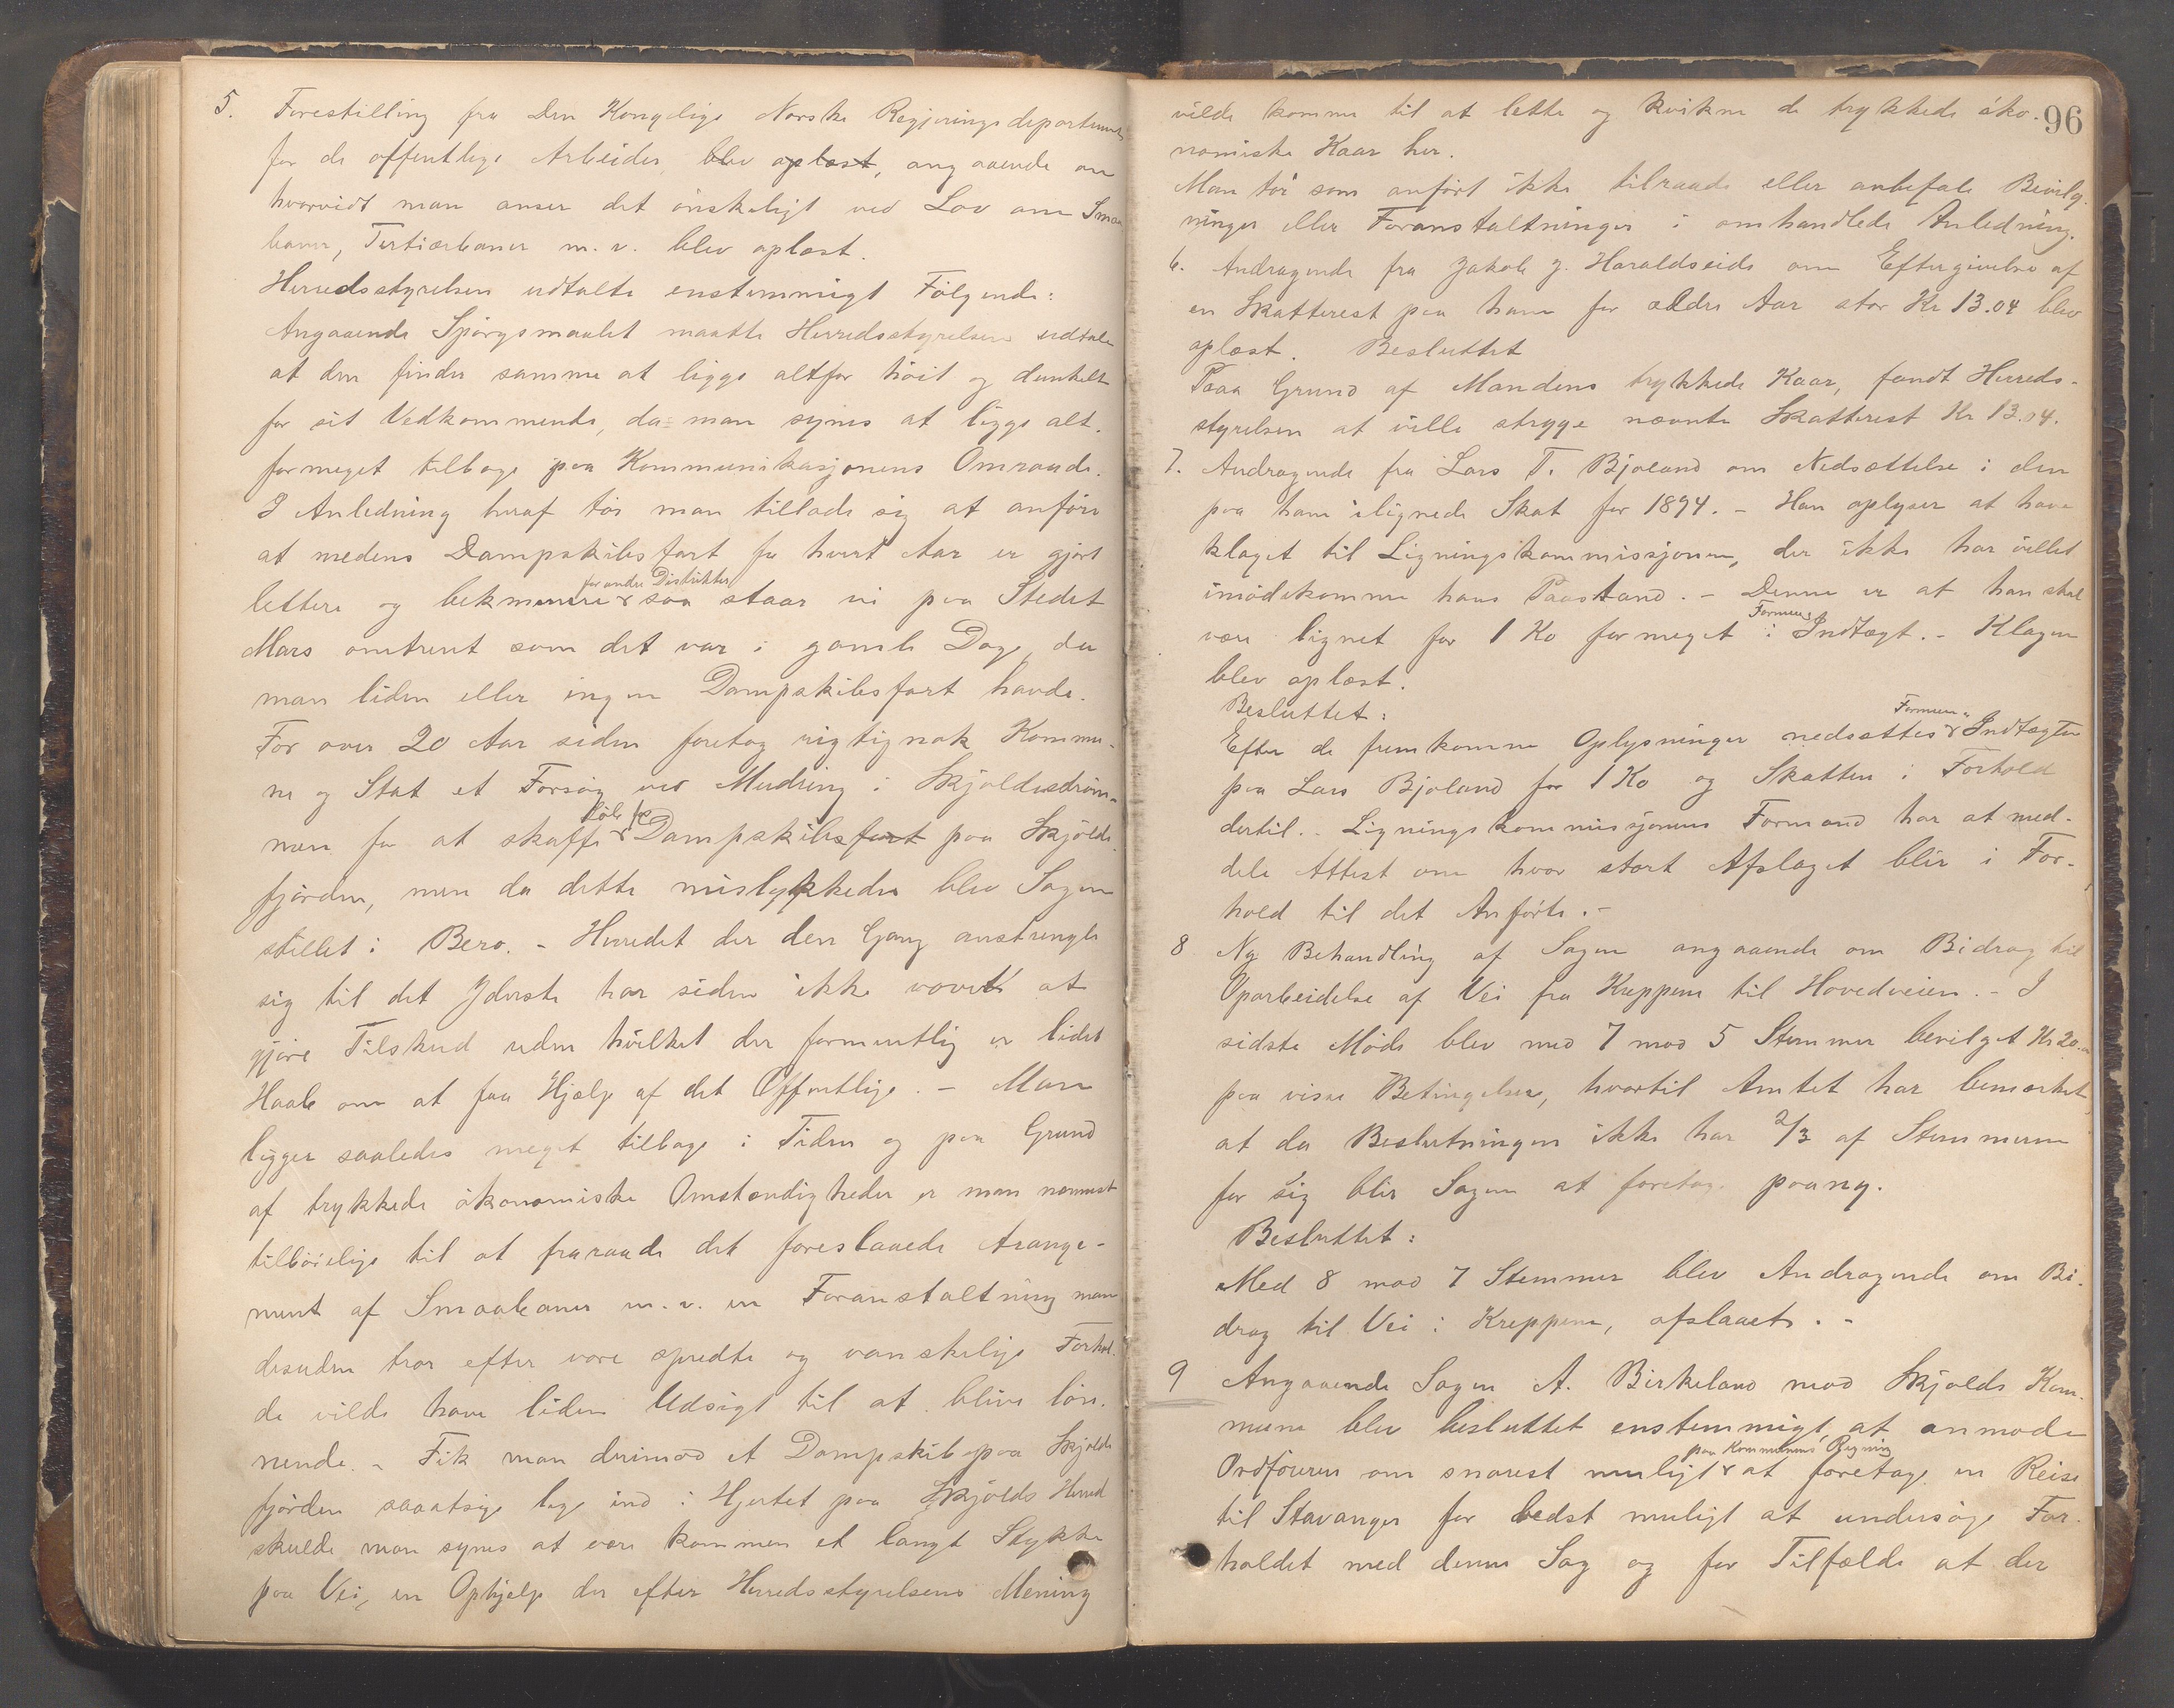 5. Forestilling fra Den Kongelige Norske Regjeringsdepartement
for de offentlige Arbeider, blev oplæst, angaaende om
hvorvidt man anser det ønskeligt ved Lov om Smaa
baner, Tertiærbaner m. v. blev oplæst.
Herredsstyrelsen udtalte enstemmigt Følgende:
Angaaende Spørgsmaalet maatte Herredsstyrelsen udtale
at den finder samme at ligge altfor høit og dunkelt
for sit Vedkommende, da man synes at ligge alt-
formeget tilbage paa Kommunikasjonens Omraade.
I Anledning heraf tør man tillade sig at anføre
at medens Dampskibsfart for hvert Aar er gjort
for andre Distrikter
lettere og bekmmere saa staar vi paa Stedet
Mars omtrent som det var i gamle Dage, da
man liden eller ingen Dampskibsfart havde.
For over 20 Aar siden foretog rigtignok Kommu-
ne og Stat et Forsøg ved Mudring i Skjoldestrøm-
Løb for
men for at skaffe Dampskibsfart paa Skjolds
fjorden, men da dette mislykkedes blev Sagen
stillet i Bero. - Herredet der den Gang anstrengte
sig til det Yderste har siden ikke vovet at
gjøre Tilskud uden hvilket der formentlig er lidet
Haab om at faa Hjælp af det Offentlige. - Man
ligger saaledes meget tilbage i Tiden og paa Grund
af trykkede økonomiske Omstændigheder er man nærmest
tilbøielige til at fraraade det foreslaaede Arange-
ment af Smaabaner m. v. en Foranstaltning man
desuden tror efter vore spredte og vanskelige Forhol-
de vilde have liden Udsigt til at blive løn-
nende. - Fik man derimod et Dampskib paa Skjolds
fjorden saaatsige lige ind i Hjertet paa Skjolds Herred
skulde man synes at være kommen et langt Stykke
paa Vei, en Ophjælp der efter Herredsstyrelsens Mening
96
vilde komme til at lette og kvikne de trykkede øko-
nomiske Kaar her.
Man tør som anført ikke tilraade eller anbefale Bevilg-
ninger eller Foranstaltninger i omhandlede Anledning.
6. Andragende fra Jakob J. Haraldseide om Eftergivelse af
en Skatterest paa ham for ældre Aar stor Kr 13.04 blev
oplæst. Besluttet
Paa Grund af Mandens trykkede Kaar, fandt Herreds-
styrelsen at ville stryge nævnte Skatterest Kr 13.04.
7. Andragende fra Lars T. Bjoland om Nedsættelse i den
paa ham ilignede Skat for 1894. - Han oplyser at have
klaget til Ligningskommissjonen, der ikke har villet
imødekomme hans Paastand. - Denne er at han skal
Formue &
være lignet for 1 Ko formeget i Indtægt. - Klagen
blev oplæst.
Besluttet:
Formue &
Efter de fremkomne Oplysninger nedsættes Indtægten
paa Lars Bjoland for 1 Ko og Skatten i Forhold
dertil. - Ligningskommissjonens Formand har at med-
dele Attest om hvor stort Afslaget blir i For-
hold til det Anførte. -
8 Ny Behandling af Sagen angaaende om Bidrag til
Oparbeidelse af Vei fra Kreppene til Hovedveien. - I
sidste Møde blev med 7 mod 5 Stemmer bevilget Kr 20.
paa visse Betingelser, hvortil Amtet har bemærket
at da Beslutningen ikke har 2/3 af Stemmerne
for sig blir Sagen at foretage paany.
Besluttet:
Med 8 mod 7 Stemmer blev Andragende om Bi-
drag til Vei i Kreppene, afslaaet. -
9 Angaaende Sagen A. Birkeland mod Skjolds Kom-
mune blev besluttet enstemmigt, at anmode
paa Kommunens Regning
Ordføreren om snarest muligt at foretage en Reise
til Stavanger for bedst muligt at undersøge For-
holdet med denne Sag og for Tilfælde at der